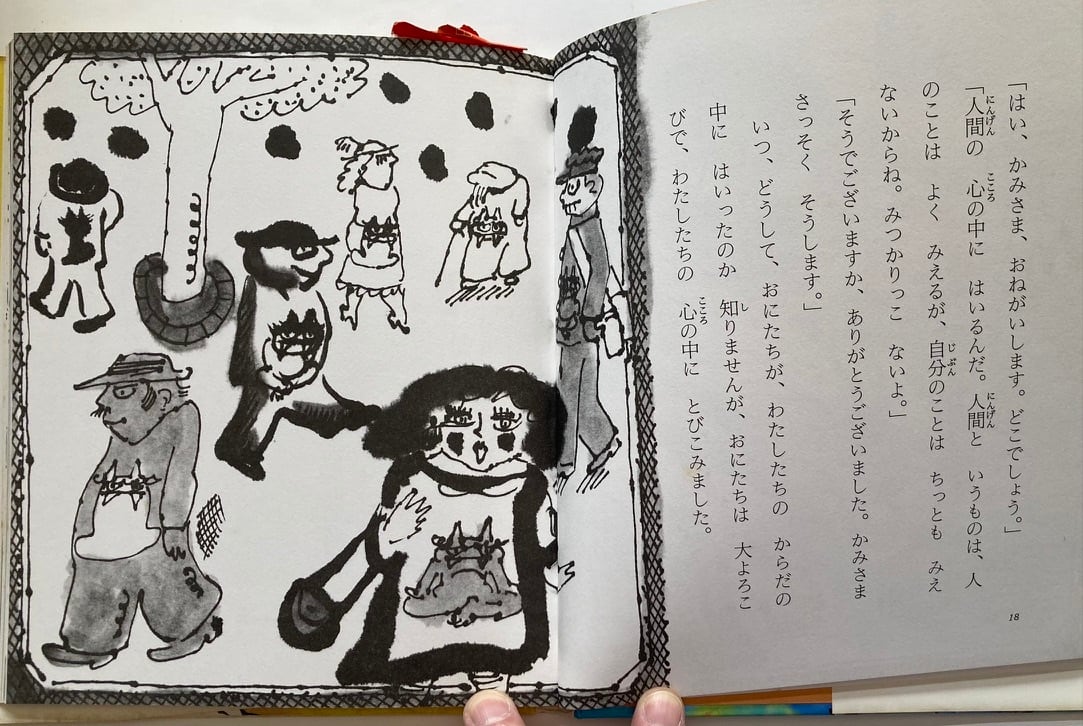 「はい、かみさま、おねがいします。どこでしょう。」
「人間の 心の中に はいるんだ。人間と いうものは、人
のことは よく みえるが、自分のことは ちっとも みえ
ないからね。みつかりっこ ないよ。」
「そうでございますか、ありがとうございました。かみさま
さっそく そうします。」
いつ、どうして、おにたちが、わたしたちの からだの
中に はいったのか 知りませんが、おにたちは 大よろこ
びで、わたしたちの 心の中に とびこみました。
18